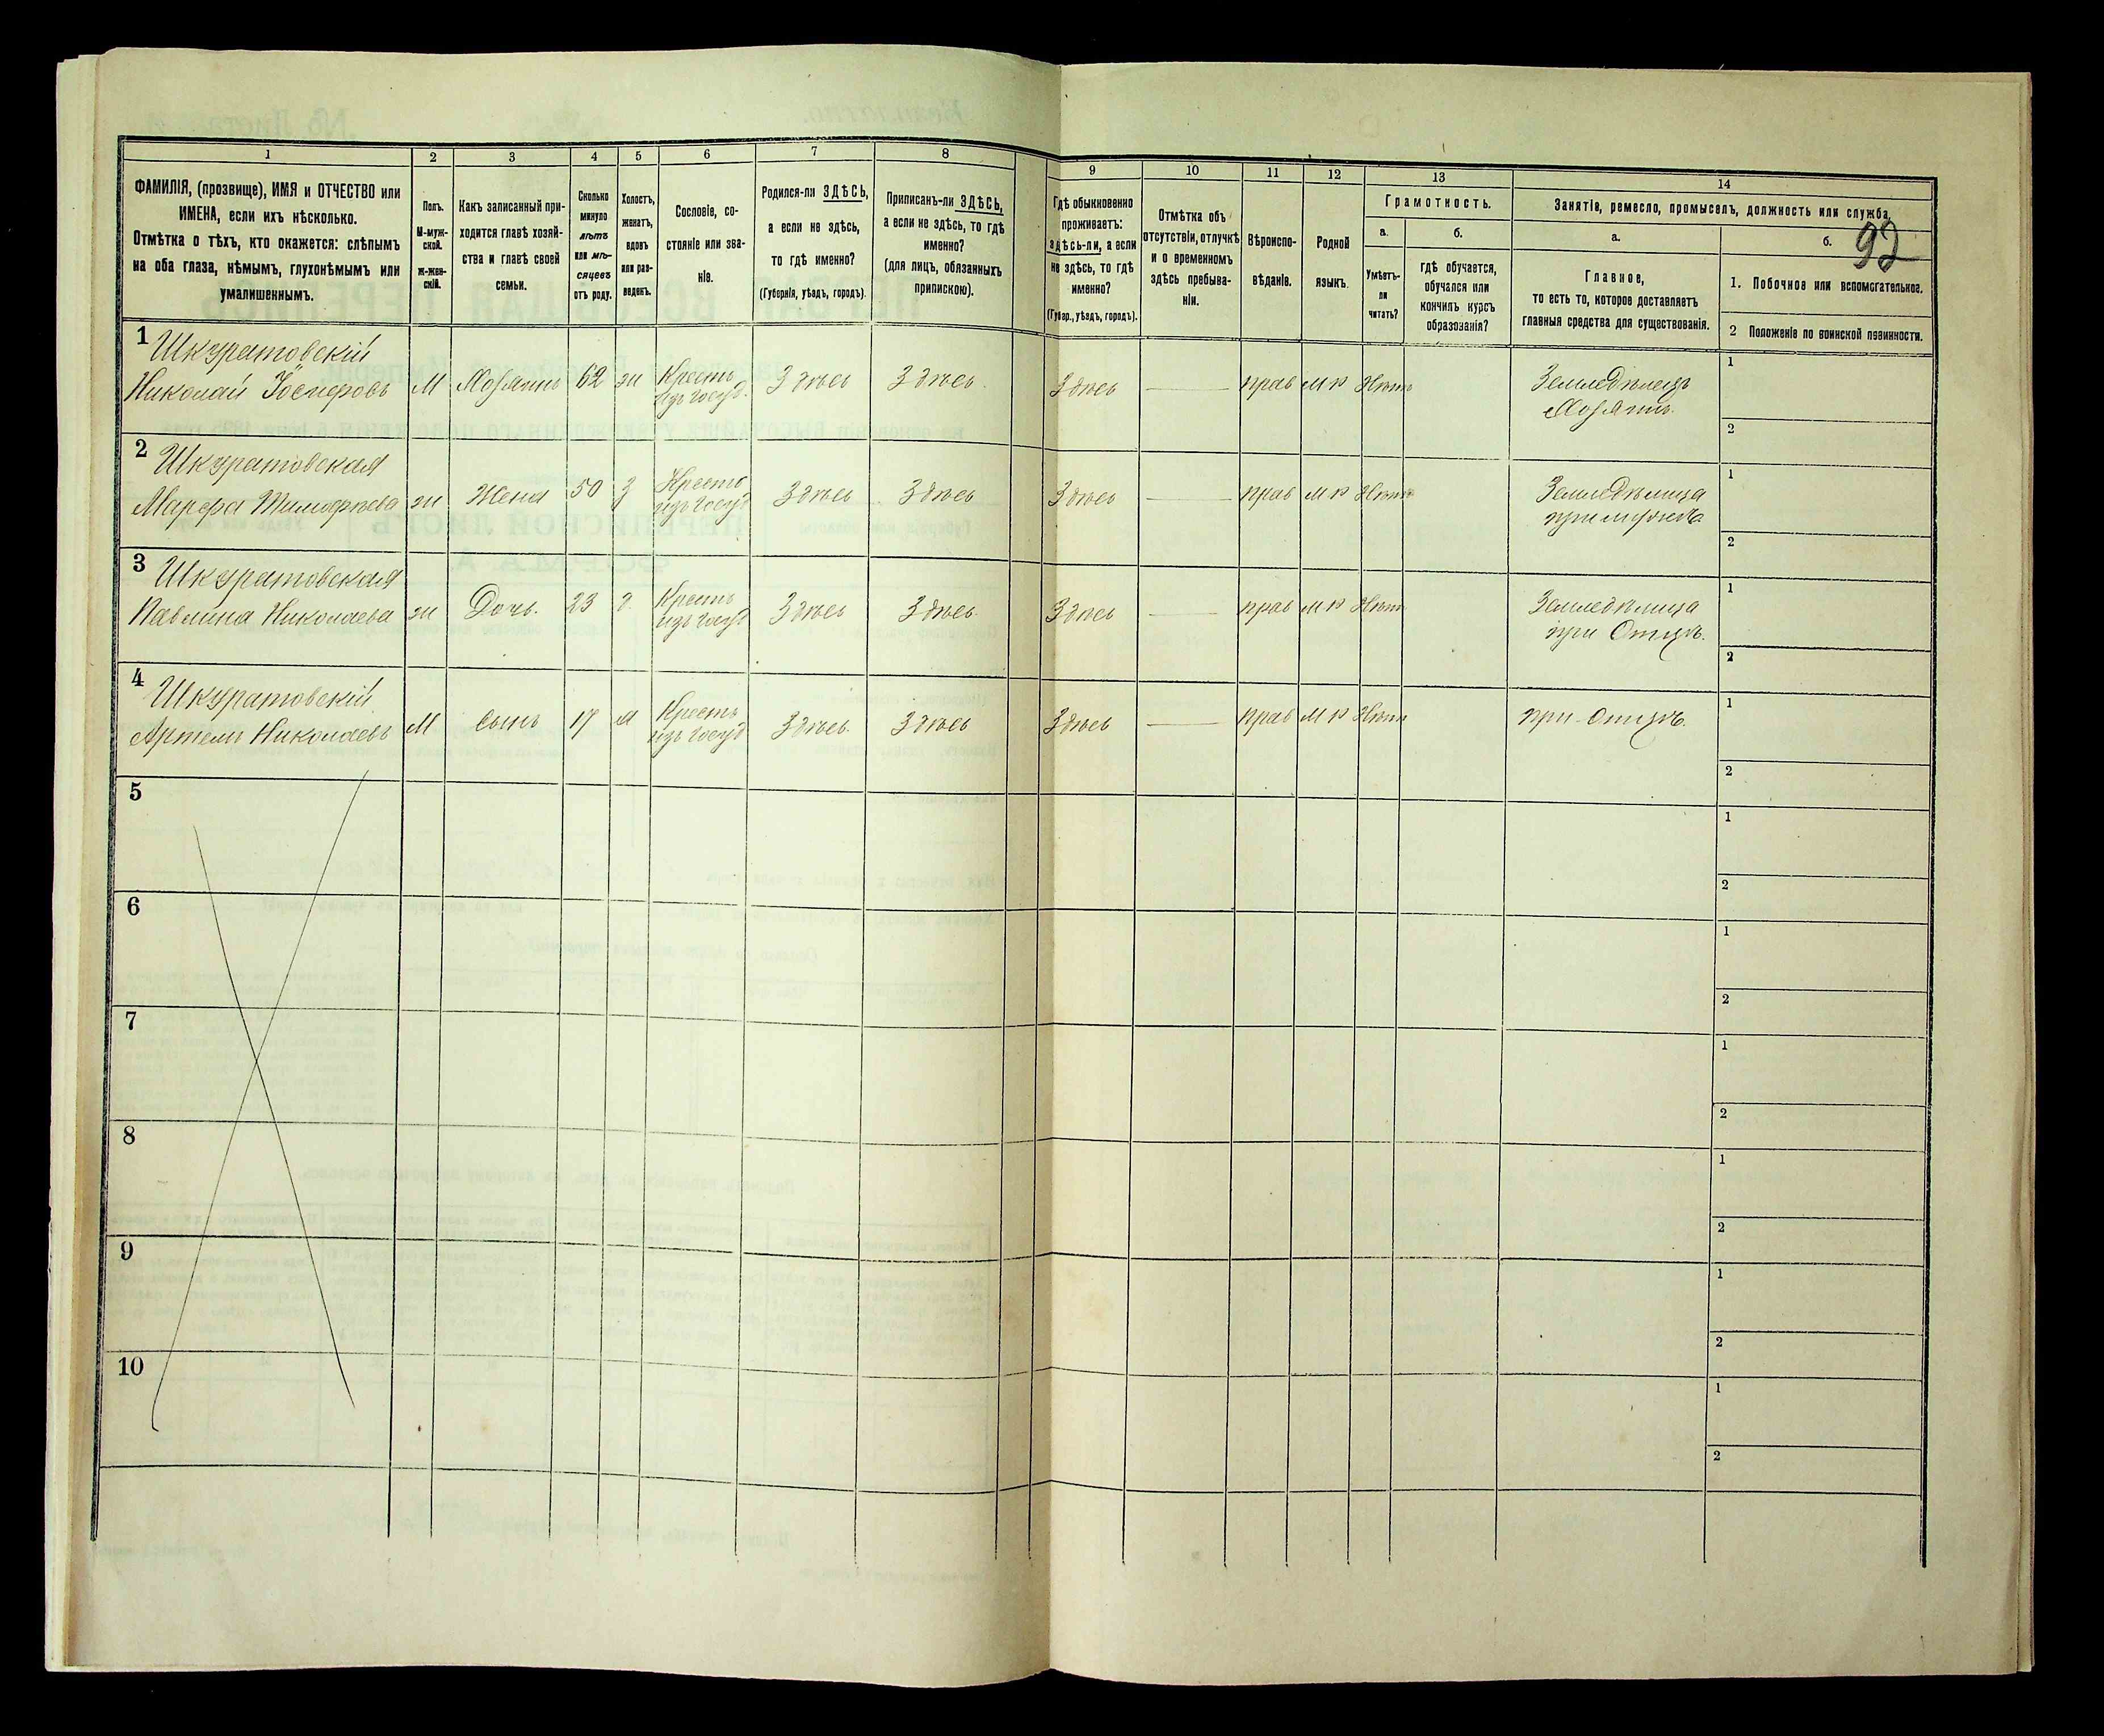 92
1
2
3
4
5
6
7
8
9
10
11
12
13
14
ФАМИЛІЯ, (прозвище), ИМЯ и ОТЧЕСТВО или
ИМЕНА, если ихъ нѣсколько.
Отмѣтка о тѣхъ, кто окажется: слѣпымъ
на оба глаза, нѣмымъ, глухонѣмымъ или
умалишеннымъ.
Полъ.
М-муж-
ской.
ж-жен-
скій.
Какъ записанный при-
ходится главѣ хозяй-
ства и главѣ своей
семьи.
Сколько
минуло
лѣтъ
или мѣ-
сяцевъ
отъ роду.
Холостъ,
женатъ,
вдовъ
или раз-
веденъ.
Сословіе, со-
стояніе или зва-
ніе.
Родился-ли ЗДѢСЬ,
а если не здѣсь,
то гдѣ именно?
(Губернія, уѣздъ, городъ).
Приписанъ-ли ЗДѢСЬ,
а если не здѣсь, то гдѣ
именно?
(для лицъ, обязанныхъ
припискою).
Гдѣ обыкновенно
проживаетъ:
здѣсь-ли, а если
не здѣсь, то гдѣ
именно?
(Губер., уѣздъ, городъ).
Отмѣтка объ
отсутствіи, отлучкѣ
и о временномъ
здѣсь пребыва-
ніи.
Вѣроиспо-
вѣданіе.
Родной
языкъ.
Грамотность.
а.
Умѣетъ-
ли
читать?
б.
гдѣ обучается,
обучался или
кончилъ курсъ
образованія?
Занятіе, ремесло, промыселъ, должность или служба.
а.
Главное,
то есть то, которое доставляетъ
главныя средства для существованія.
б.
1. Побочное или вспомогательное.
2 Положеніе по воинской повинности.
1 Шкуратовскій
Николай Іосифовъ М Хозяинъ 62 ж Крестъ
изъ госуд. Здѣсь Здѣсь Здѣсь прав м р Нѣтъ Земледѣлецъ
Хозяинъ.
1
2
2 Шкуратовская
Марфа Тимофѣева ж Жена 50 з Крестъ
изъ госуд Здѣсь Здѣсь Здѣсь прав м р Нѣтъ Земледѣлица
при мужѣ
1
2
3 Шкуратовская
Павлина Николаева ж Дочь. 23 д. Крестъ
изъ госуд Здѣсь Здѣсь Здѣсь прав м р Нѣтъ Земледѣлица
при Отцѣ.
1
2
4 Шкуратовскій
Артемъ Николаевъ М Сынъ 17 Крестъ
изъ госуд Здѣсь Здѣсь Здѣсь прав м р Нѣтъ при Отцѣ.
1
2
5
1
2
6
1
2
7
1
2
8
1
2
9
1
2
10
1
2